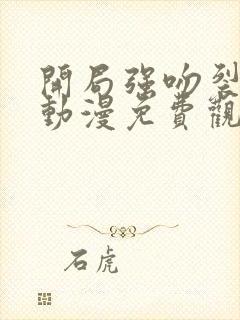 開局強吻裂
動漫免費觀
石虎